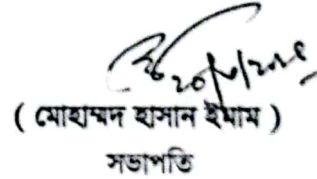 ( মোহাম্মদ হাসান ইমাম )
সভাপতি